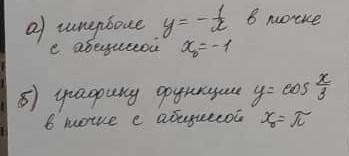 а) гиперболе y = -1/x в точке
с абциссой x₀ = -1
б) графику функции y = cos x/3
в точке с абциссой x₀ = π